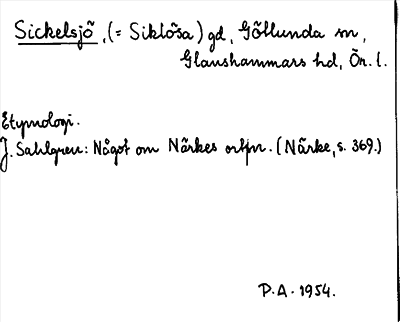 Sickelsjö, (= Siklösa) gd, Götlunda sn,
Glanshammars hd, Ör. l.
Etymologi.
J. Sahlgren: Något om Närkes ortn. (Närke, s. 369.)
P.A. 1954.